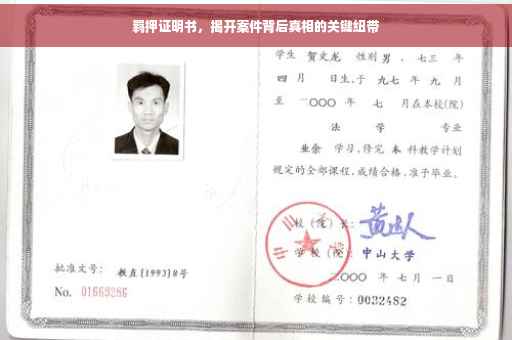 羁押证明书，揭开案件背后真相的关键纽带
学生 贺文龙 性别 男，七三 年
四 月 日生，于 九七 年 九 月
至 二〇〇〇 年 七 月在本校(院)
法 学 专业
业余 学习，修完 本 科教学计划
规定的全部课程，成绩合格，准予毕业。
校（院）长：
学 校（院）：中山大学
二〇〇〇 年 七 月 一 日
批准文号： 教直 [1993] 8号
No. 01669286
学校编号：0032482